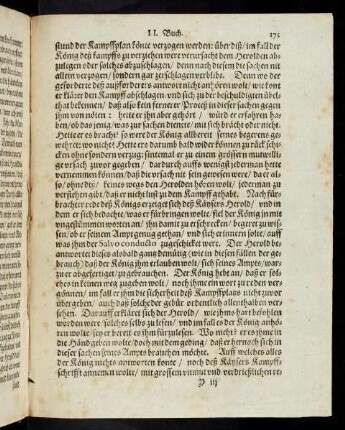 II. Buch. 175
stund der Kampffplan könte verzogen werden: über diß/ im fall der
König deß kampffs zu verziehen were verursacht dem Herolden ab-
zulegen oder solches abzuschlagen/ denn nach diesem die sachen nit
allein verzogen/ sondern gar zerschlagen verblibe. Denn wo der
gefoderte deß auffforderers antwort nicht anhören wolt/ wer kont
er kläret den Kampff abschlagen und sich zu der beschuldigten übel-
that bekennen/ daß also kein fernerer Proceß in dieser sachen gegen
ihm von nöten: hette er ihn aber gehört/ würd er erfahren ha-
ben/ ob das jenig/ was zur sachen dienete/ mit sich brächt oder nicht.
Hette er es bracht/ so were der König allbereit seines begerens ge-
wehret: wo nicht? Hette er darumb bald wider können zu rück schi-
cken ohne sondern verzug: sintemal er zu einem grössern mutwillig
vrsach zuvor gegeben/ dardurch auffs wenigst jederman hette
vernemmen können/ daß die vrsach nit sein gewesen were/ da er al-
so/ ohne diß/ keines wegs den Herolden hören wolt/ jederman zu
verstehen gibt/ daß er nicht lust zu dem Kampff gehabt. Nach für-
brachter rede deß Königs erzeiget sich deß Käysers Herold/ und in
dem er sich bedachte/ was er fürbringen wolte/ fiel der König in mit
ungestümmen worten an/ ihn damit zu erschrecken/ begeret zu wis-
sen/ ob er seinem Ampt gnug gethan/ und sich erinnern solte/ auff
was ihm der Salvo conducto zugeschickt wert. Der Herold be-
antwortet dieses alobald gantz demütig (wie in diesen fällen der ge-
brauch) daß der König ihm erlauben wolt/ sich seines Ampts/ war-
zu er abgefertiget/ zu gebrauchen. Der König hebt an/ daß er sol-
ches in keinen weg zugeben wolt/ noch ihme ein wort zu reden ver-
gönnen/ im fall er ihm die sicherheit deß Kampffplatz nicht zuvor
übergeben/ auch daß solche der gebür ordenlich allenthalben ver-
sehen. Darauff erkläret sich der Herold/ wie ihms hart befohlen
worden were/ solches selbs zu lesen/ und im fall es der König anhö-
ren wolte/ sey er bereit es ihm fürzulesen. Wo mehr? er es ihme in
die Händ geben wolte/ doch mit dem geding/ daß er hernach sich in
dieser sachen seines Ampts brauchen möchte. Auff welches alles
der König nichts antworten konte/ noch deß Käysers Kampff-
schrifft annemen wolte/ mit grossem vnmut und verdrießlichen re-
Y iij